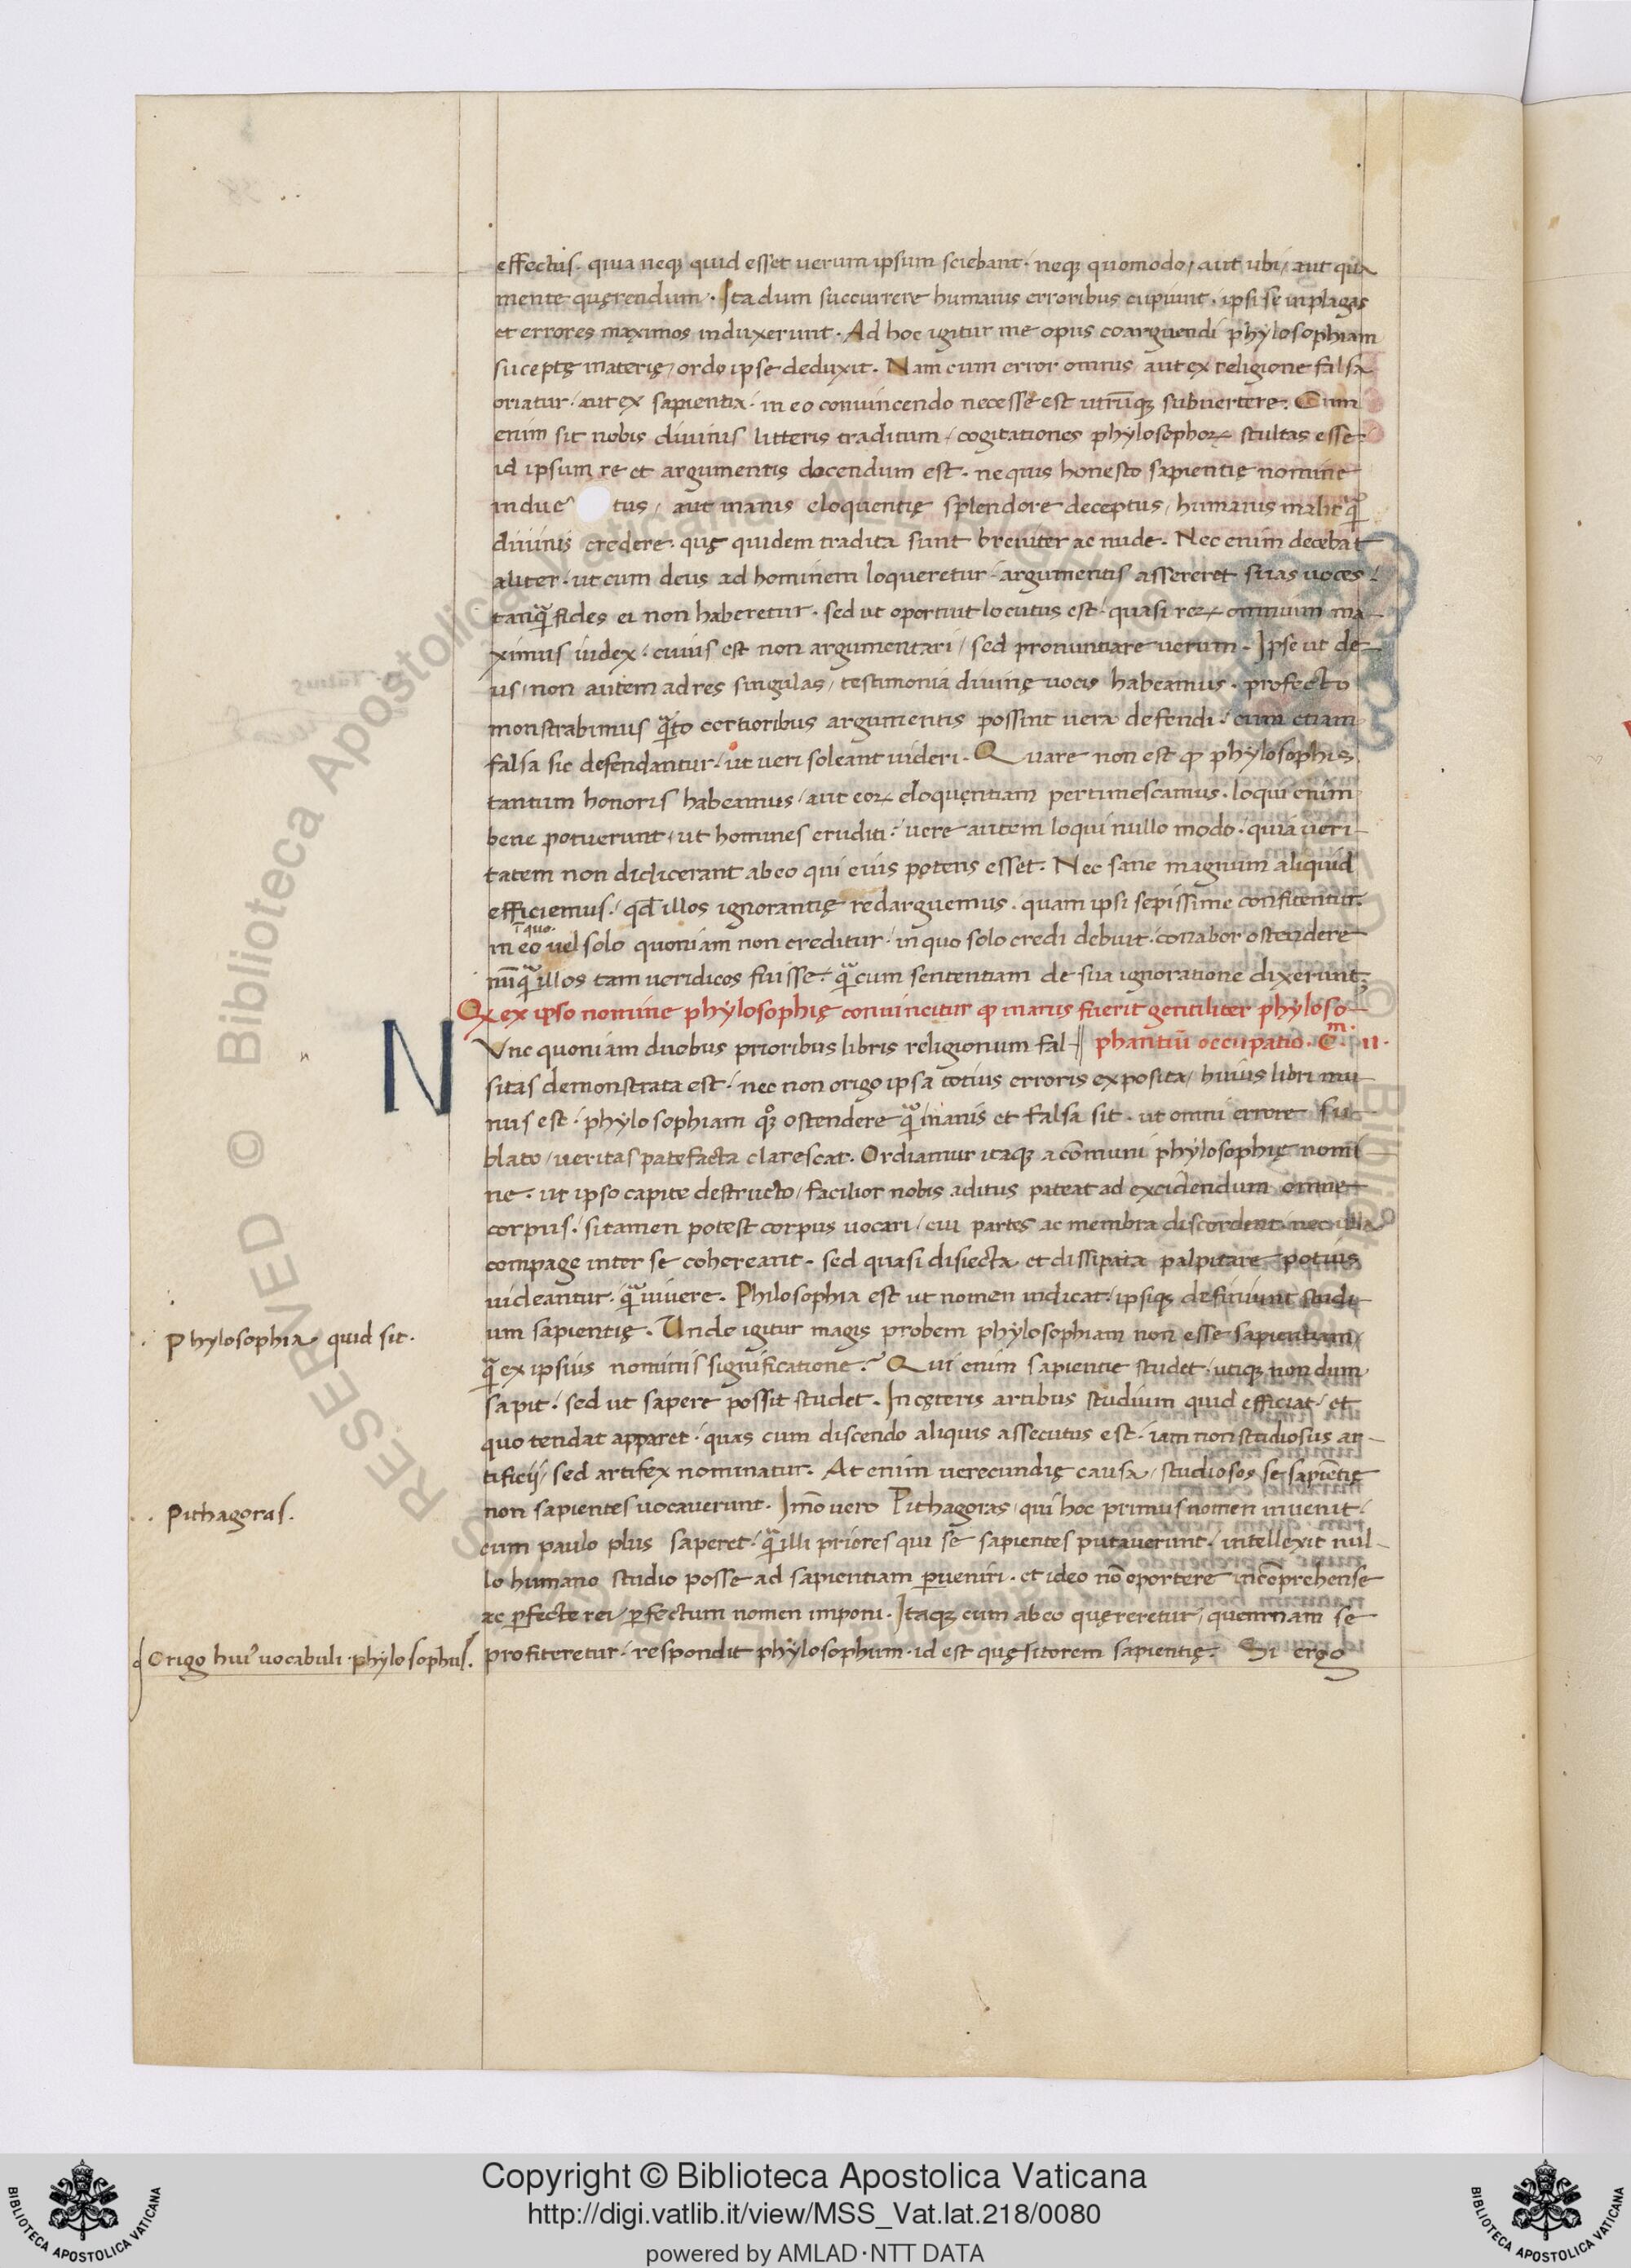 effectus. quia neqꝫ quid esset uerum ipsum sciebant. neqꝫ quomodo, aut ubi, aut qua
mente quęrendum. Ita dum succurrere humanis erroribus cupiunt. ipsi se in plagas
et errores maximos induxerunt. Ad hoc igitur me opus coarguendi phylosophiam
suceptę materię, ordo ipse deduxit. Nam cum error omnis aut ex religione falsa
oriatur. aut ex sapientia. in eo conuincendo necesse est utrūqꝫ subuertere. Cum
enim sit nobis diuinis litteris traditum, cogitationes phylosophoꝝ stultas esse.
id ipsum re et argumentis docendum est. ne quis honesto sapientię nomine
induc tus, aut inanis eloquentię splendore deceptus, humanis malit ꝙ̃
diuinis credere. quę quidem tradita sunt breuiter ac nude. Nec enim decebat
aliter. ut cum deus ad hominem loqueretur. argumentis assereret suas uoces.
tanꝙ̃ fides ei non haberetur. sed ut oportuit locutus est. quasi reꝝ omnium ma-
ximus iudex. cuius est non argumentari, sed pronuntiare uerum. Ipse ut de-
us, non autem ad res singulas, testimonia diuinę uocis habeamus. profecto
monstrabimus ꝙ̃to certioribus argumentis possint uera defendi. cum etiam
falsa sic defendantur. ut ueri soleant uideri. Quare non est ꝙ phylosophis
tantum honoris habeamus, aut eoꝝ eloquentiam pertimescamus. loqui enim
bene potuerunt, ut homines eruditi. uere autem loqui nullo modo. quia ueri-
tatem non didicerant ab eo qui eius potens esset. Nec sane magnum aliquid
efficiemus. qd̄ illos ignorantię redarguemus. quam ipsi sepissime confitentur.
quo.
in eo uel solo quoniam non creditur. in quo solo credi debuit. conabor ostendere
nūꝙ̃ illos tam ueridicos fuisse. ꝙ̃ cum sententiam de sua ignoratione dixerunt;
ex ipso nomine phylosophię conuincitur ꝙ inanis fuerit gentiliter phyloso-
Nvnc quoniam duobus prioribus libris religionum fal- phantiū occupatio. C.m. ii.
sitas demonstrata est. nec non origo ipsa totius erroris exposita, huius libri mu
nus est. phylosophiam qꝫ ostendere ꝙ̃ inanis et falsa sit. ut omni errore su-
blato, ueritas patefacta clarescat. Ordiamur itaqꝫ a cōmuni phylosophię nomi
ne. ut ipso capite destructo, facilior nobis aditus pateat ad excidendum omne
corpus. si tamen potest corpus uocari, cui partes ac membra discordent. nec ulla
compage inter se cohereant. sed quasi disiecta et dissipata palpitare potuis
uideantur. ꝙ̃ uiuere. Philosophia est ut nomen indicat. ipsiqꝫ definiunt studi
um sapientię. Unde igitur magis probem phylosophiam non esse sapientiam,
ꝙ̃ ex ipsius nominis significatione? Qui enim sapientie studet. utiqꝫ non dum
sapit. sed ut sapere possit studet. In cęteris artibus studium quid efficiat. et
quo tendat apparet. quas cum discendo aliquis assecutus est. iam non studiosus ar-
tificii, sed artifex nominatur. At enim uerecundię causa, studiosos se sapiētię
non sapientes uocauerunt. Imō uero Pithagoras, qui hoc primus nomen inuenit.
cum paulo plus saperet. ꝙ̃ illi priores qui se sapientes putauerunt. intellexit nul-
lo humano studio posse ad sapientiam ꝑueniri. et ideo nō oportere incōprehense
ac ꝑfecte rei, ꝑfectum nomen imponi. Itaqꝫ cum ab eo quęreretur, quemnam se
profiteretur. respondit phylosophum. id est quęsitorem sapientię. Si ergo
Phylosophia quid sit.
Pithagoras.
Origo hui' uocabuli phylosophus.
© Biblioteca Apostolica Vaticana ALL RIGHTS RESERVED
Copyright © Biblioteca Apostolica Vaticana
http://digi.vatlib.it/view/MSS_Vat.lat.218/0080
powered by AMLAD·NTT DATA
BIBLIOTECA APOSTOLICA VATICANA
BIBLIOTECA APOSTOLICA VATICANA